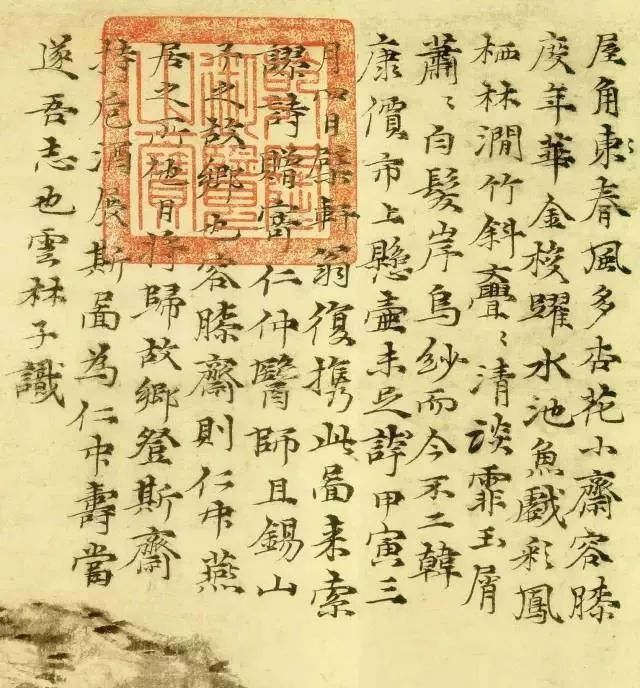 屋角東春風多杏花小齋容膝
度年華金梭躍水池魚戲彩鳳
栖林澗竹斜亹〻清談霏玉屑
蕭〻白髮岸烏紗而今不二韓
康價市上懸壺未足誇甲寅三
月四日檗軒翁復攜此啚來索
謬詩贈寄仁仲醫師且錫山
予之故鄉也容膝齋則仁中燕
居之所他日將歸故鄉登斯齋
持卮酒展斯啚為仁中壽當
遂吾志也雲林子識